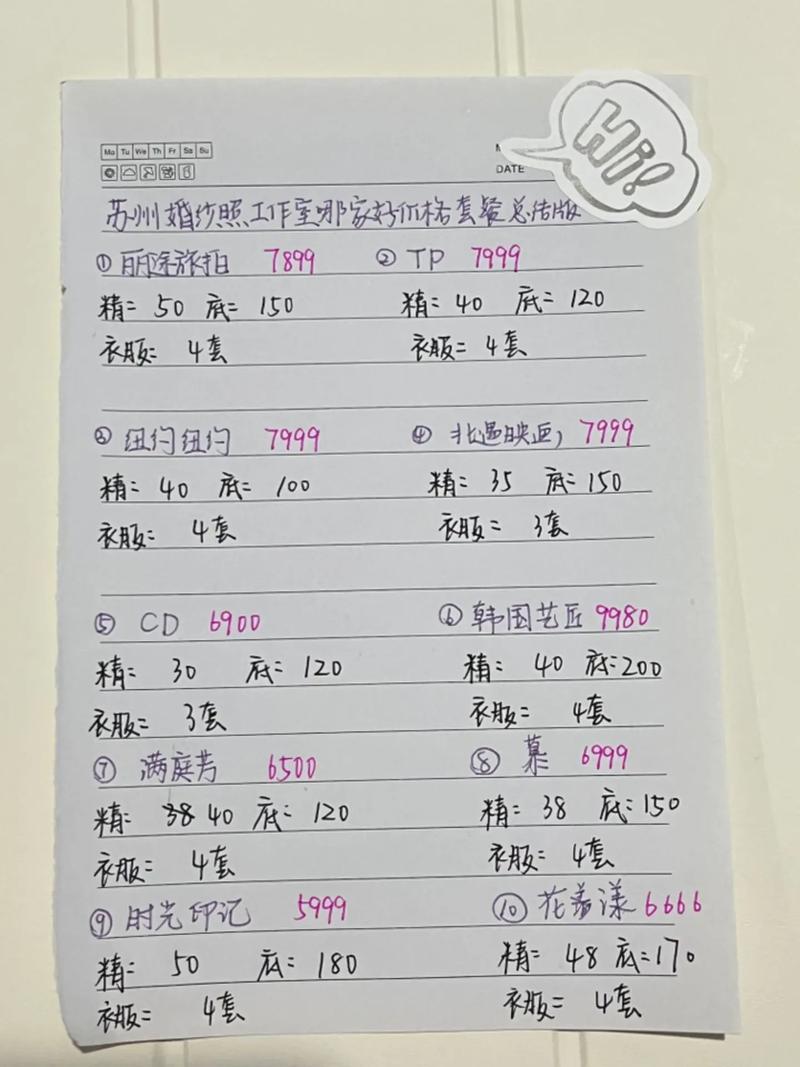 Mo Tu We Th Fr Sa Su
DATE
Hi!
苏州婚纱照工作室哪家好价格套餐总结版
① 丽途旅拍 7899 ② TP 7999
精= 50 底= 150 精= 40 底= 120
衣服= 4套 衣服= 4套
③ 纽约纽约 7999 ④ 北遇映画 7999
精= 40 底= 100 精= 35 底= 150
衣服= 4套 衣服= 3套
⑤ CD 6900 ⑥ 韩国艺匠 9980
精= 30 底= 120 精= 40 底=200
衣服= 3套 衣服= 4套
⑦ 满庭芳 6500 ⑧ 慕 6999
精= 40 底= 120 精= 38 底=150
衣服= 4套 衣服= 4套
⑨ 时光印记 5999 ⑩ 花恙漾 6666
精= 50 底= 180 精= 48 底=170
衣服= 4套 衣服= 4套